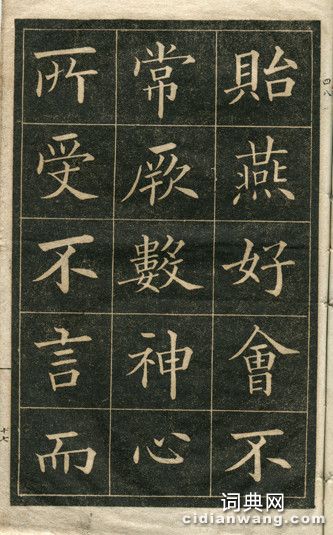 貽燕好會不
常厥數神心
所受不言而
四八
十七
词典网
cidianwang.com